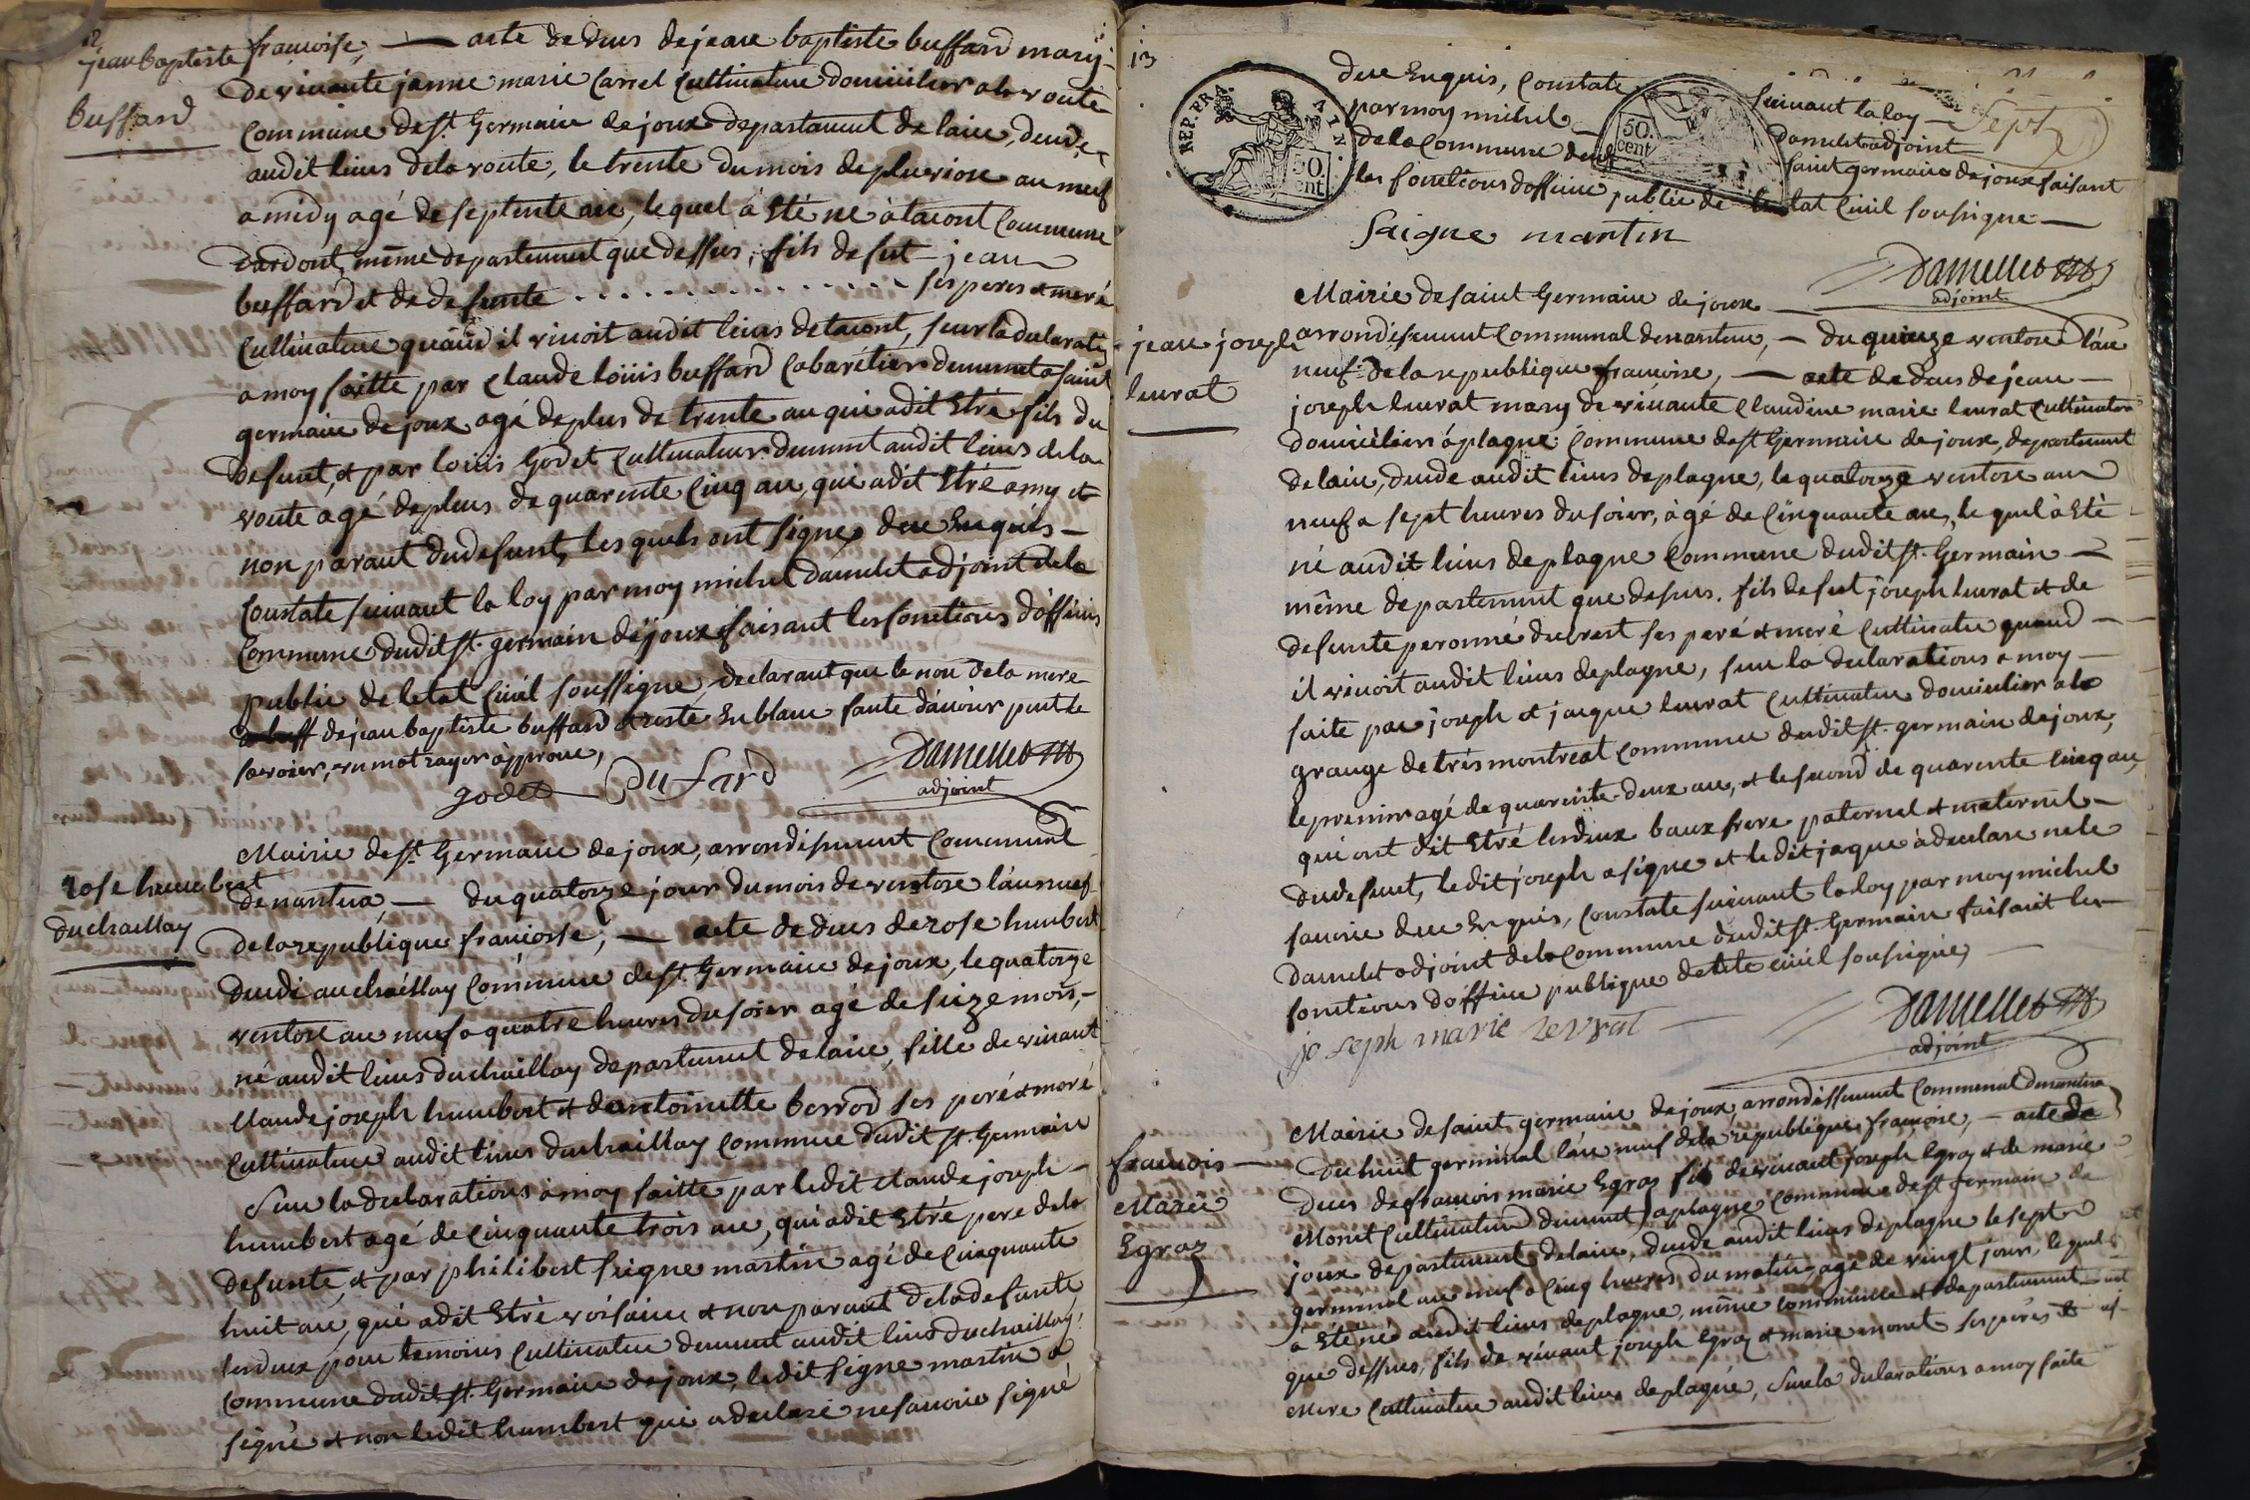 12
jean baptiste
buffard
francoise, — acte de deces de jean baptiste buffard mary
de vivante janne marie Carrel Cultivateur domicilier a la voute
Commune de st. Germain de joux departament de lain, decede
audit lieus de la voute, le trente du mois de pluviose an neuf
a midy agé de septente an, lequel à été né à tacont Commune
dardont, même departement que dessus, fils de fut jean
buffard et de defunte . . . . . . . . . . . . ses peres et meré
Cultivateur quand il vivoit audit lieus de tacont, sur la declaration
a moy faitte par Claude loüis buffard Cabarétier demeurent a saint
germain de joux agé de plus de trente an qui a dit Etré fils du
defunt, et par loüis Godet Cultivateur demeurent audit lieus de la
voute agé de plus de quarente Cinq an, qui a dit Etré amy et
non parant du defunt, les quels ont signe, due Enquis —
Constate suivant la loy par moy michel Damelet adjoint de la
Commune dudit st. germain de joux faisant les fonctions d'officier
public de letat Civil soussigne, declarant que le non de la mere
de jean baptiste buffard et reste En blanc faute d'avoir put le
savoier, un mot rayer approuve,
godet Bufard Damellet M
adjoint
rose humbert
duchaillay
Mairie de st. Germain de joux, arrondisment Communal
de nantua, — du quatorze jour du mois de ventose l'an neuf
de la republique francoise, — acte de deces de rose humbert
decedé au chaillay Commune de st. Germain de joux, le quatorze
ventose an neuf a quatre heures du soier agé de seize mois, —
né audit lieus du chaillay departement de lain, fille de vivant
Claude joseph humbert et de antoinette berrod ses peré et moré
Cultivateur audit lieus duchaillay commune dudit st. Germain
Sur la declarations a moy faitte par ledit claude joseph —
humbert agé de Cinquante trois an, qui a dit Etré pere de la
defunte, et par philibert seigne martin agé de Cinquante
huit an, qui a dit Etré voisain et non parant de la defunte
les deux pour temoins Cultivateur demeurent audit lieus duchaillay
Commune dudit st. Germain de joux, ledit seigne martin a
signé et non ledit humbert qui a declaré ne savoir signé
13
REP. FRA. AIN
50. cent
50. cent
Sept
due Enquis, Constate suivant la loy —
par moy michel Damelet adjoint
de la Commune de saint germain de joux faisant
les fonctions dofficier publier de letat Civil soussigne —
Saigne martin
Damellet M
adjoint
jean joseph
leurat
Mairie de saint Germain de joux
arrondisement Communal de nantua, — du quinze ventose l'an
neuf de la republique francoise, — acte de deces de jean —
joseph leurat mary de vivante Claudine marie leurat Cultivateur
domicilier à plagne Commune de st Germain de joux, departement
de lain, decede audit lieus de plagne, le quatorze ventose an
neuf a sept heures du soier, àgé de Cinquante an, le quel à Eté
né audit lieus de plagne Commune dudit st. Germain —
même departement que desus. fils de fut joseph leurat et de
defunte peronné ducrest ses peré et meré Cultivateur quand —
il vivoit audit lieus de plagne, sur la declarations a moy —
faite par joseph et jaque leurat Cultivateur domicilier a la
grange de trés montreat Commune dudit st. germain de joux,
le premier agé de quarente deux an, et le second de quarente Cinq an,
qui ont dit Etré les deux baux frere paternel et maternel —
du defunt, ledit joseph a signe et ledit jaque à declare ne le
savoir due Enquis, Constate suivant la loy par moy michel
Damelet adjoint de la Commune dudit st. Germain faisant les
fonctions d'officier publique de lete civil soussigné,
joseph marie Levrat Damellet M
adjoint
francois —
Marie
Egraz
Mairie de saint germain de joux, arrondissement Communal de nantua
du huit germinal l'an neuf de la republique francoise, — acte de
deces de francois marie Egraz fils de vivant joseph Egraz et de marie
Monet Cultivateur demeurent a plagne Commune de st germain de
joux departement de lain, decede audit lieus de plagne le sept
germinal an neuf a Cinq heures du matin, agé de vingt jour, le quel
à Eté né audit lieus de plagne, même Commune et departement
que dessus, fils de vivant joseph Egraz et marie monet ses perés et
Mere Cultivateur audit lieus de plagné, Sur la declarations a moy faite